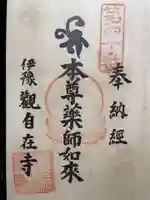 奉納経
本尊薬師如來
伊豫
觀自在寺